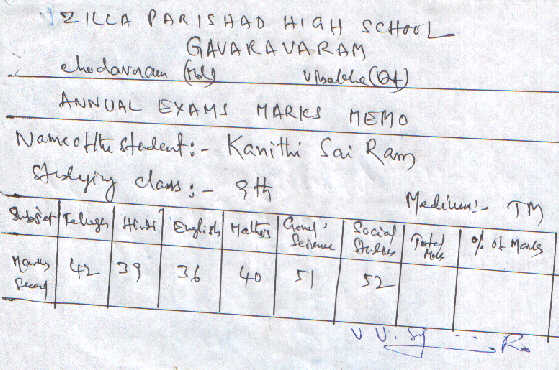 ZILLA PARISHAD HIGH SCHOOL
GAVARAVARAM
(Mdl) (Dt)
ANNUAL EXAMS MARKS MEMO
Name of the student:- Kanithi Sai Ram
Studying class:- 9th
Medium:- TM
Subject Telugu Hindi English Maths Genl. Science Social Studies Total Mks % of Marks
Marks Secured 42 39 36 40 51 52